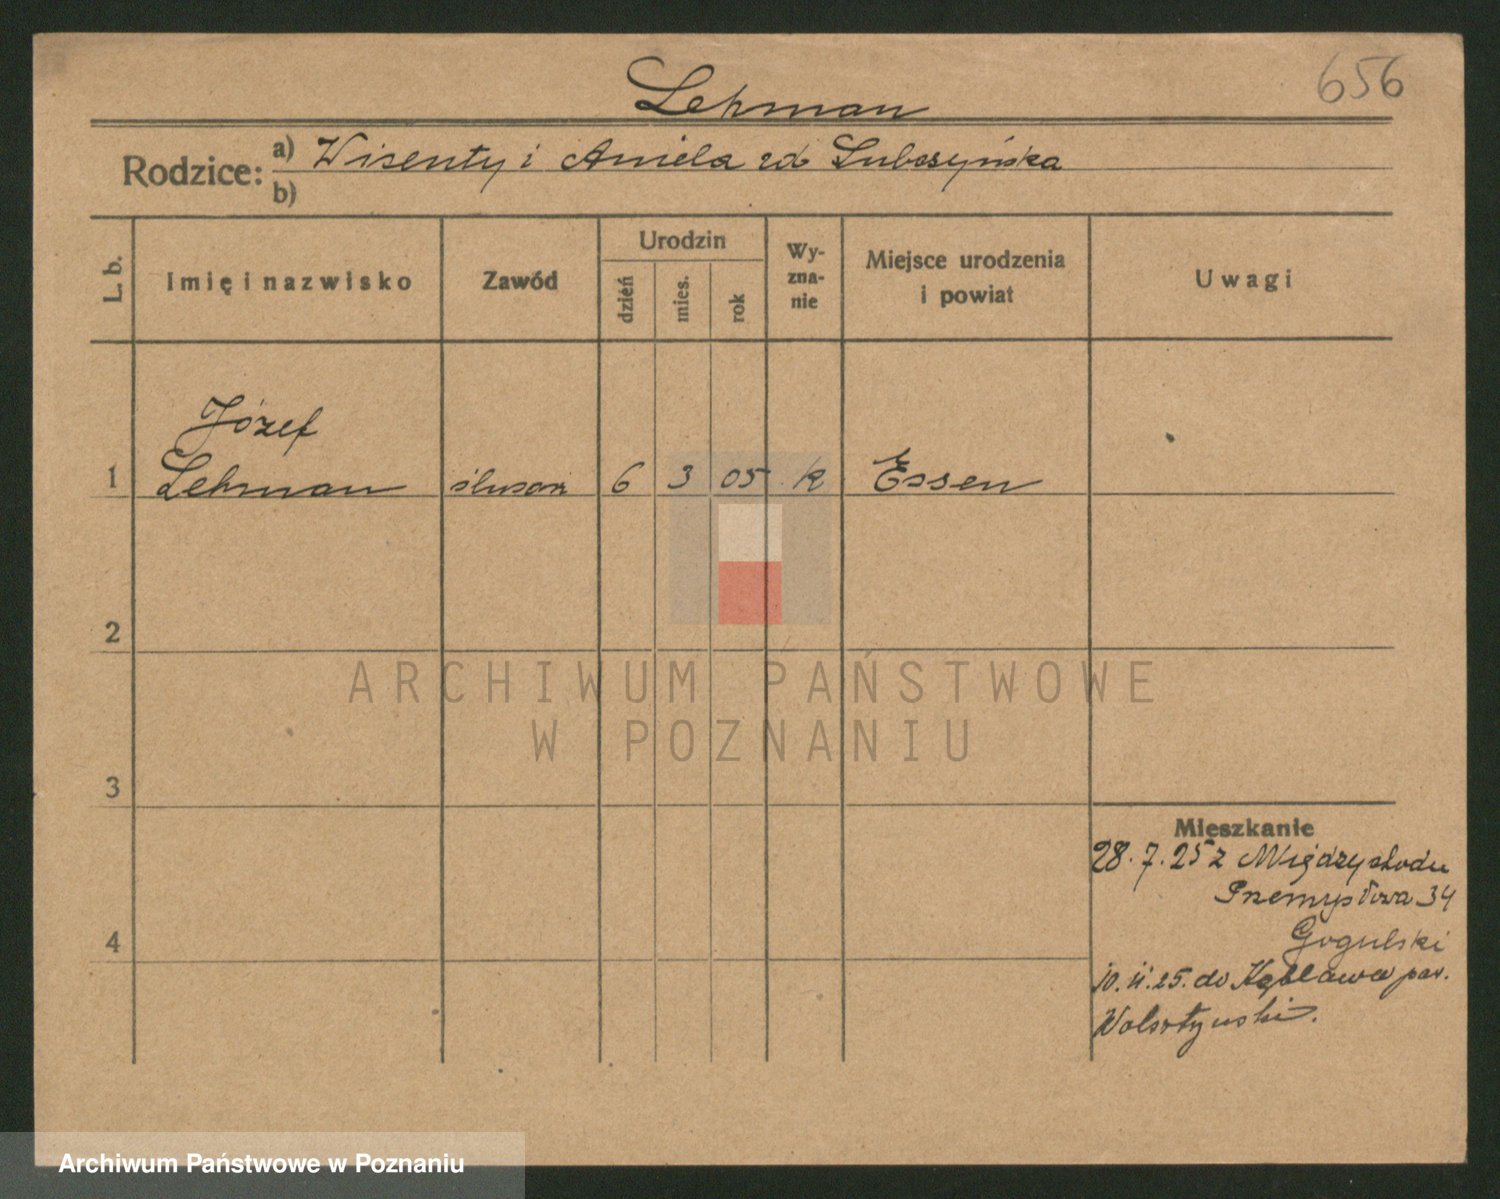 656
Lehman
Rodzice: a) Wisenty i Aniela zd Luboszyńska
b)
L. b. Imię i nazwisko Zawód Urodzin dzień mies. rok Wyznanie Miejsce urodzenia i powiat Uwagi
Józef
1 Lehman ślusarz 6 3 05 k Essen
2
3
4
Mieszkanie
28. 7. 25 z Międzychodu
Przemysłowa 34
Gogulski
10. 11. 25. do Kębłowa pow.
Wolsztyński.
ARCHIWUM PAŃSTWOWE
W POZNANIU
Archiwum Państwowe w Poznaniu